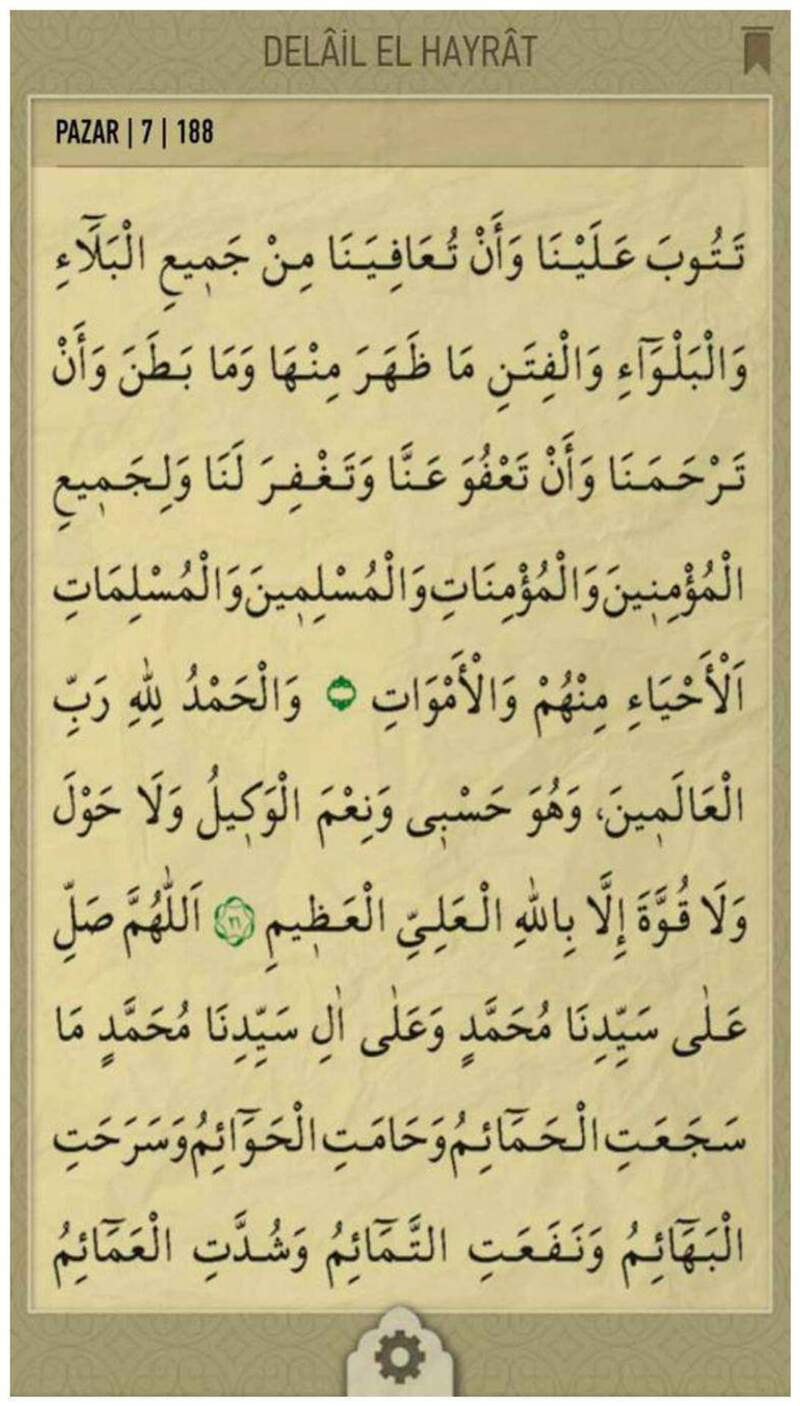 DELÂİL EL HAYRÂT
PAZAR | 7 | 188
تَتُوبَ عَلَيْنَا وَأَنْ تُعَافِيَنَا مِنْ جَمٖيعِ الْبَلَٓاءِ
وَالْبَلْوَٓاءِ وَالْفِتَنِ مَا ظَهَرَ مِنْهَا وَمَا بَطَنَ وَأَنْ
تَرْحَمَنَا وَأَنْ تَعْفُوَ عَنَّا وَتَغْفِرَ لَنَا وَلِجَمٖيعِ
الْمُؤْمِنٖينَ وَالْمُؤْمِنَاتِ وَالْمُسْلِمٖينَ وَالْمُسْلِمَاتِ
اَلْأَحْيَاءِ مِنْهُمْ وَالْأَمْوَاتِ وَالْحَمْدُ لِلّٰهِ رَبِّ
الْعَالَمٖينَ، وَهُوَ حَسْبٖى وَنِعْمَ الْوَكٖيلُ وَلَا حَوْلَ
وَلَا قُوَّةَ إِلَّا بِاللّٰهِ الْعَلِيِّ الْعَظٖيمِ ٣١ اَللّٰهُمَّ صَلِّ
عَلٰى سَيِّدِنَا مُحَمَّدٍ وَعَلٰى اٰلِ سَيِّدِنَا مُحَمَّدٍ مَا
سَجَعَتِ الْحَمَٓائِمُ وَحَامَتِ الْحَوَٓائِمُ وَسَرَحَتِ
الْبَهَٓائِمُ وَنَفَعَتِ التَّمَٓائِمُ وَشُدَّتِ الْعَمَٓائِمُ